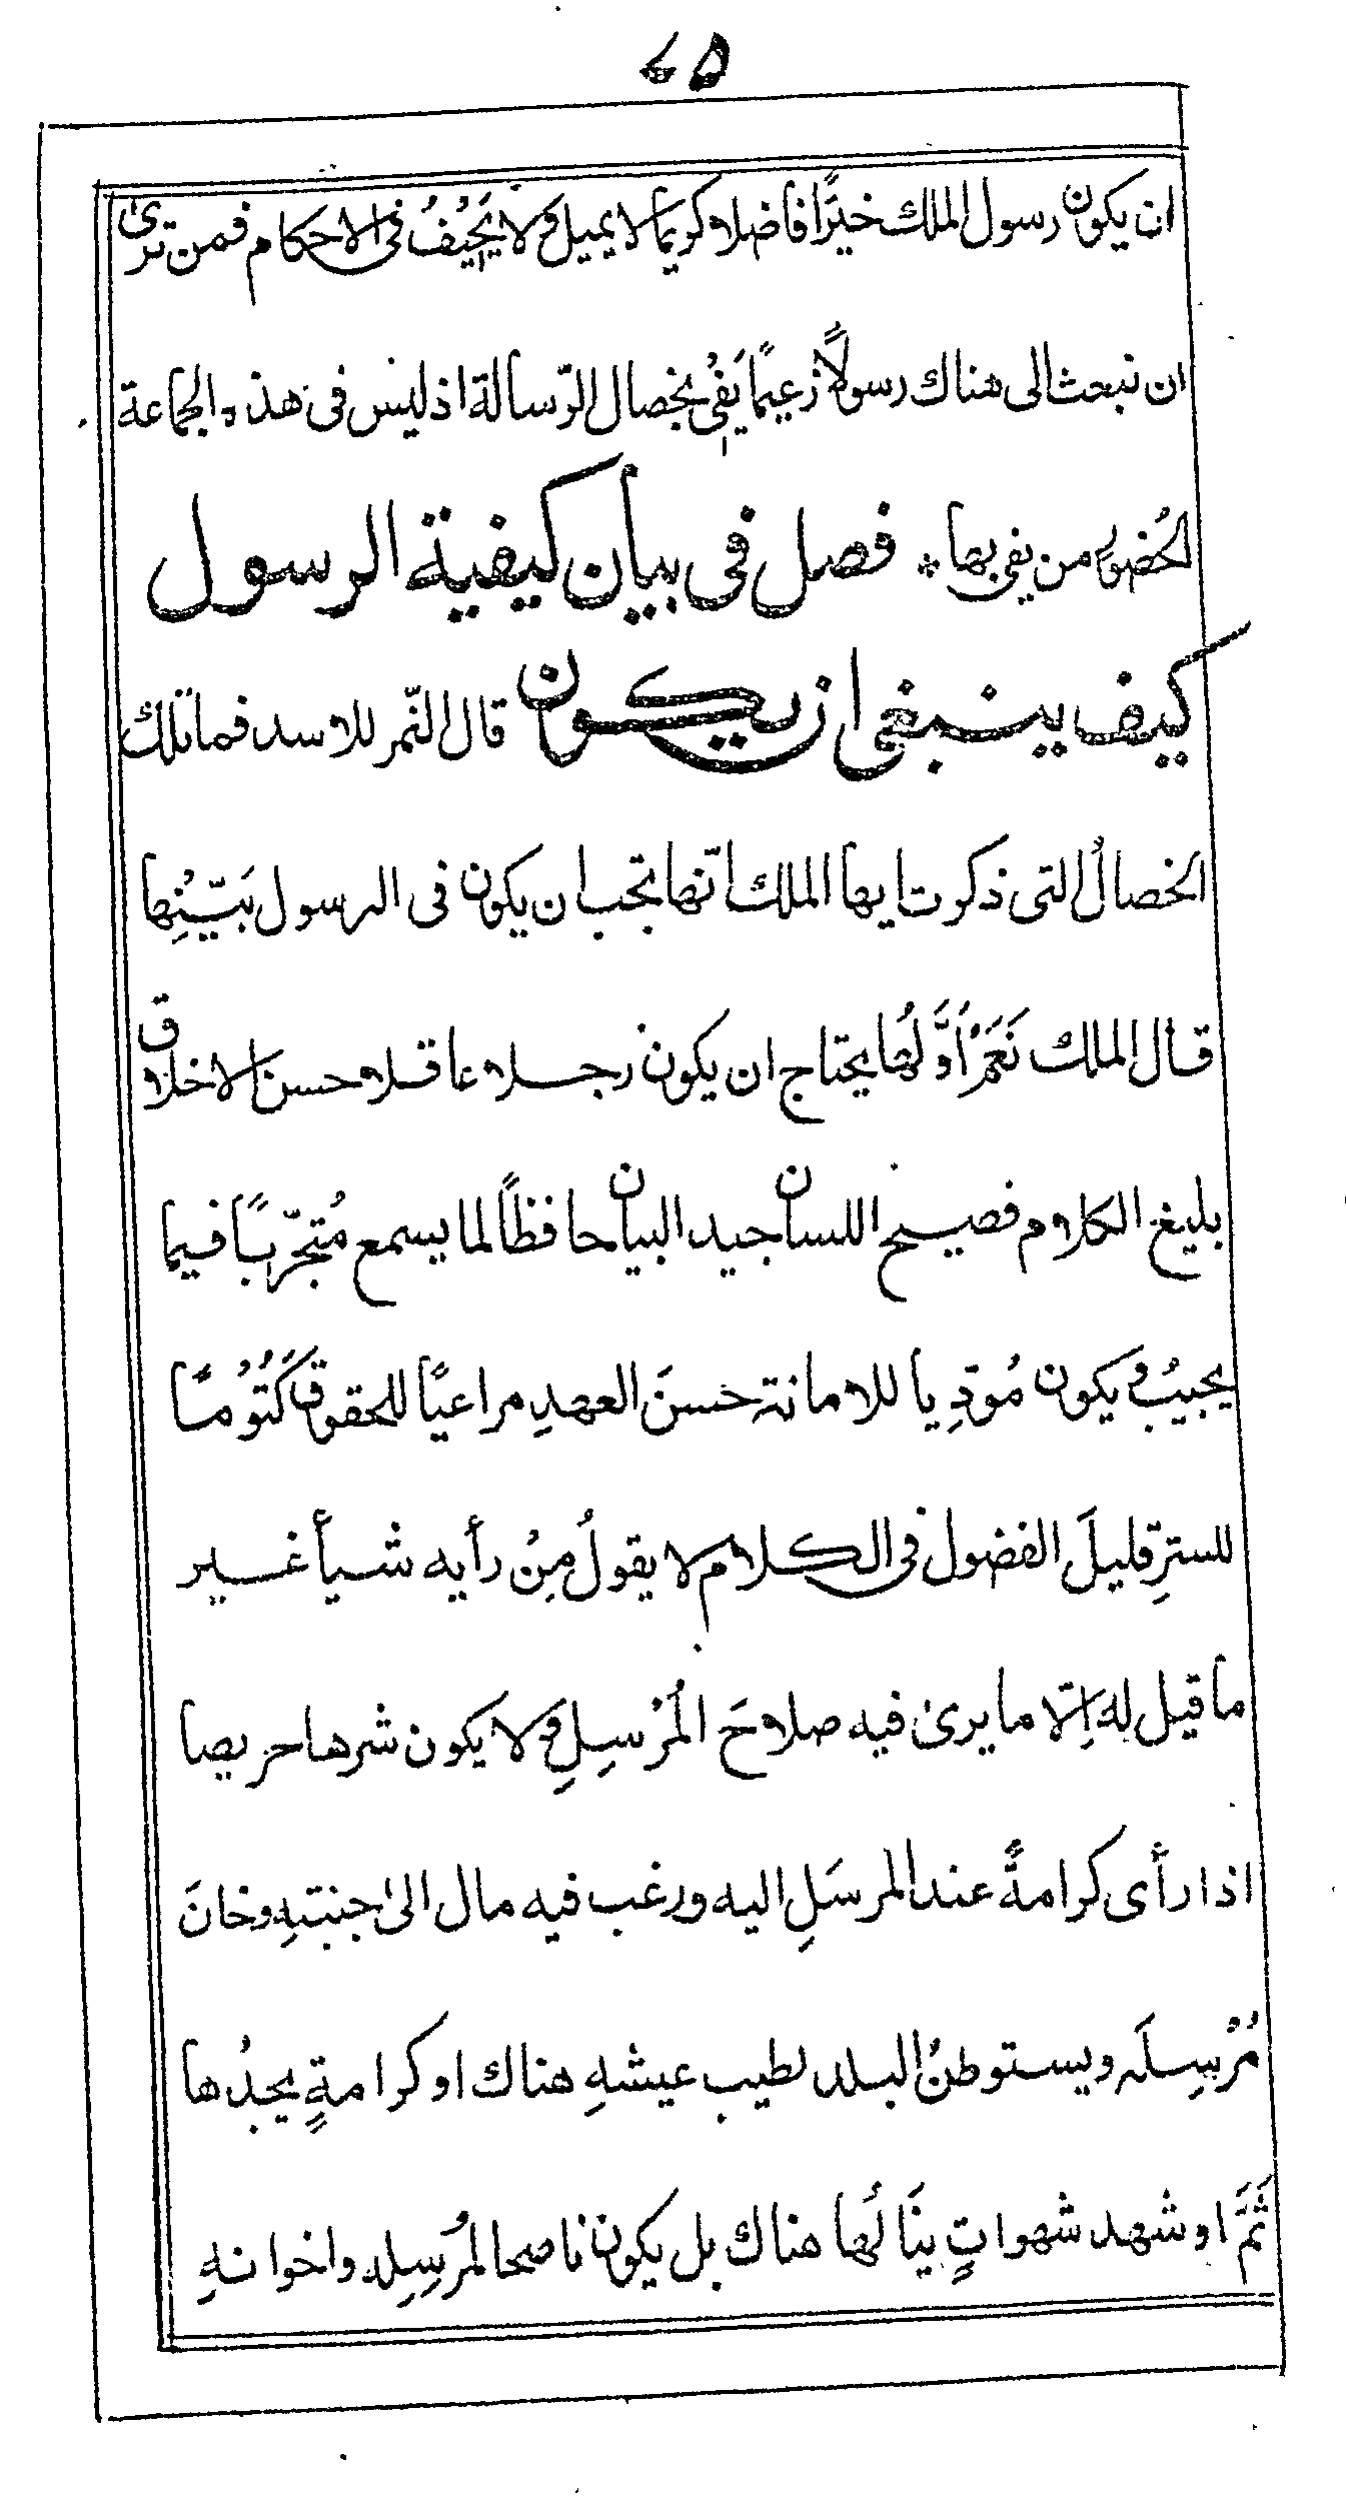 ان يكون رسول الملك خيّرًا فاضلا كريما لا يميل ولا يَحِيْفُ فى الاحكام فمن ترى
ان نبعث الى هناك رسولًا زعيمًا يَفِىْ بخصال الرّسالة اذ ليس فى هذه الجماعة
الحُضور من يفى بها * فصل فى بيان كيفية الرسول
كيف ينبغى ان يكون قال النّمر للاسد فما تلك
الخصالُ التى ذكرت ايها الملك انّها تجب ان يكون فى الرسول بَيّنْها
قال الملك نَعَمْ اَوَّلُها يحتاج ان يكون رجلا عاقلا حسن الاخلاق
بليغ الكلام فصيح اللسان جيد البيان حافظاً لما يسمع مُتَجَرّبًا فيما
يجيبُ ويكون مُودِيا للامانة حسنَ العهدِ مراعيًا للحقوق كَتُوْمًا
للسترِ قليلَ الفضول فى الكلام لا يقولُ مِنْ رأيه شيأ غير
ما قيل له اِلّا ما يرىٰ فيه صلاحَ المُرْسِلِ ولا يكون شرها حريصا
اذا رأى كرامةً عند المرسَلِ اليه ورغب فيه مال الىٰ جنبتهِ وخانَ
مُرْسِلَه ويستوطنُ البلد لطيب عيشهِ هناك او كرامةٍ يجدُها
ثَمَّ او شهد شهواتٍ ينَالُها هناك بل يكون ناصحا لمُرسِلِه واخوانهِ